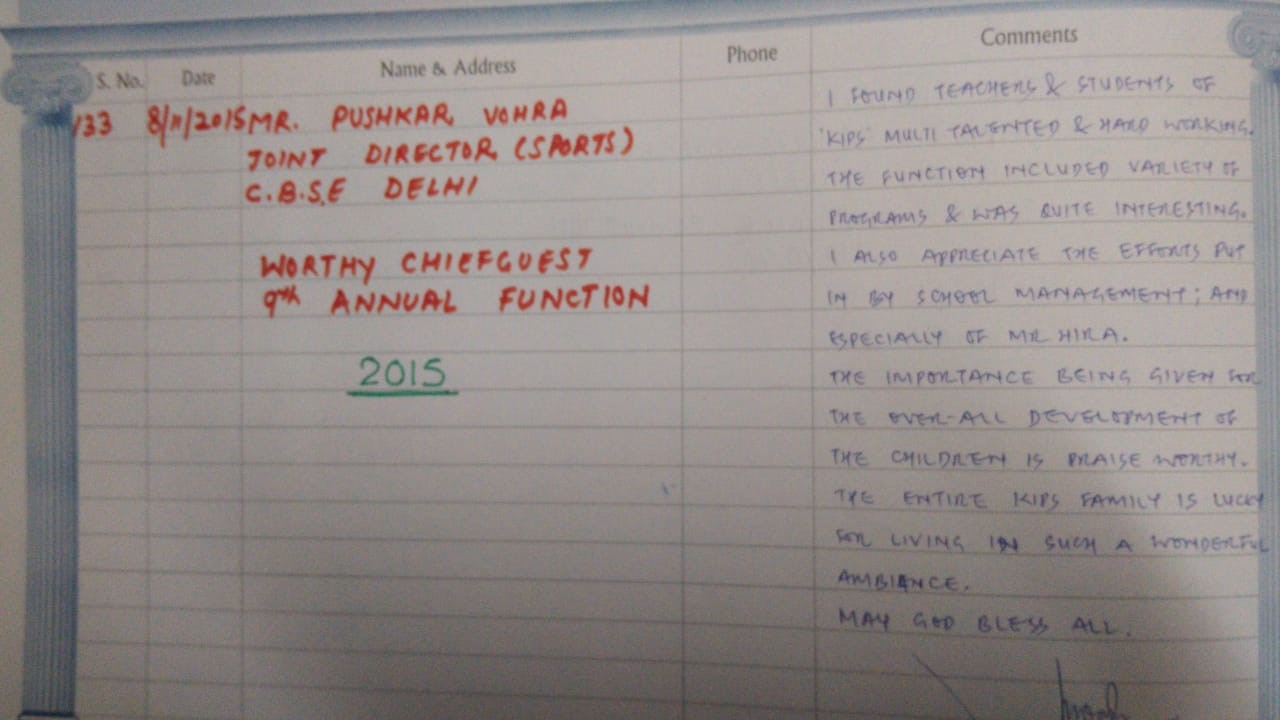 S. No. Date Name & Address Phone Comments
133 8/11/2015 MR. PUSHKAR VOHRA
JOINT DIRECTOR (SPORTS)
C.B.S.E DELHI
WORTHY CHIEFGUEST
9th ANNUAL FUNCTION
2015
I FOUND TEACHERS & STUDENTS OF
'KIPS' MULTI TALENTED & HARD WORKING.
THE FUNCTION INCLUDED VARIETY OF
PROGRAMS & WAS QUITE INTERESTING.
I ALSO APPRECIATE THE EFFORTS PUT
IN BY SCHOOL MANAGEMENT; AND
ESPECIALLY OF MR HIRA.
THE IMPORTANCE BEING GIVEN FOR
THE OVER-ALL DEVELOPMENT OF
THE CHILDREN IS PRAISE WORTHY.
THE ENTIRE KIPS FAMILY IS LUCKY
FOR LIVING IN SUCH A WONDERFUL
AMBIANCE.
MAY GOD BLESS ALL.